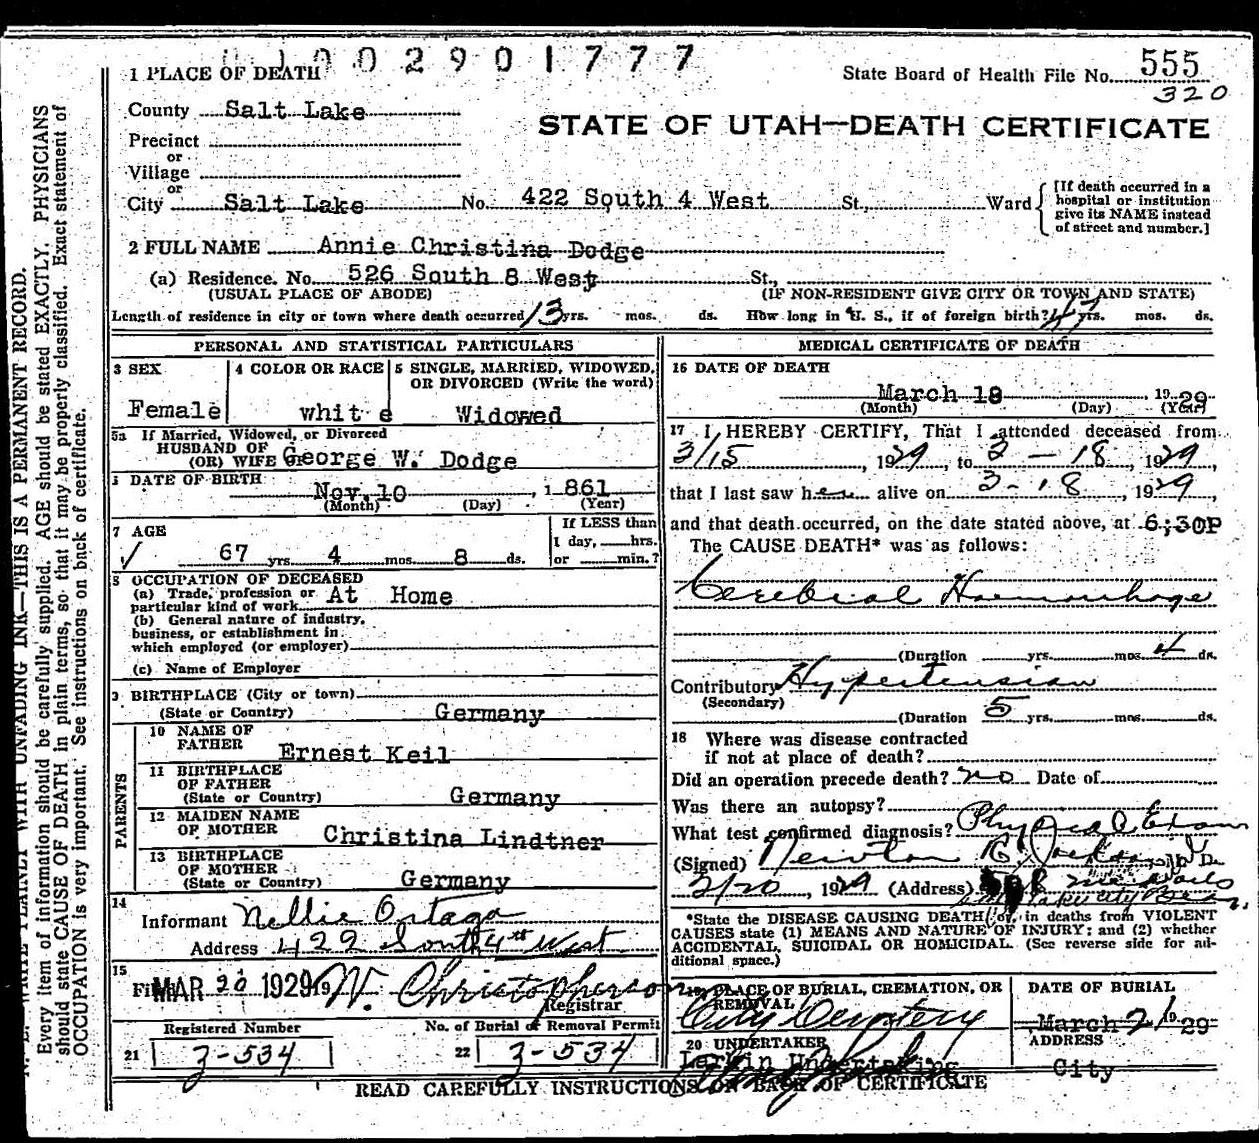 2901777
1 PLACE OF DEATH
State Board of Health File No. 555
320
County Salt Lake
STATE OF UTAH—DEATH CERTIFICATE
Precinct
or
Village
or
City Salt Lake No. 422 South 4 West St., Ward
[If death occurred in a
hospital or institution
give its NAME instead
of street and number.]
2 FULL NAME Annie Christina Dodge
(a) Residence. No. 526 South 8 West St.,
(USUAL PLACE OF ABODE) (IF NON-RESIDENT GIVE CITY OR TOWN AND STATE)
Length of residence in city or town where death occurred 13 yrs. mos. ds. How long in U. S., if of foreign birth? yrs. mos. ds.
PERSONAL AND STATISTICAL PARTICULARS
3 SEX
Female
4 COLOR OR RACE
white
5 SINGLE, MARRIED, WIDOWED,
OR DIVORCED (Write the word)
Widowed
5a If Married, Widowed, or Divorced
HUSBAND OF
(OR) WIFE George W. Dodge
DATE OF BIRTH
Nov. 10, 1861
(Month) (Day) (Year)
7 AGE
67 yrs 4 mos. 8 ds.
If LESS than
1 day, hrs.
or min.?
8 OCCUPATION OF DECEASED
(a) Trade, profession or
particular kind of work At Home
(b) General nature of industry,
business, or establishment in
which employed (or employer)
(c) Name of Employer
9 BIRTHPLACE (City or town)
(State or Country) Germany
PARENTS
10 NAME OF
FATHER Ernest Keil
11 BIRTHPLACE
OF FATHER
(State or Country) Germany
12 MAIDEN NAME
OF MOTHER Christina Lindtner
13 BIRTHPLACE
OF MOTHER
(State or Country) Germany
14
Informant Nellie Ortega
Address 422 South 4th West
15
Filed MAR 20 1929 19 W. Christopherson
Registrar
Registered Number
21 3-534
No. of Burial or Removal Permit
22 3-534
MEDICAL CERTIFICATE OF DEATH
16 DATE OF DEATH
March 18, 1929
(Month) (Day) (Year)
17 I HEREBY CERTIFY, That I attended deceased from
3/15, 1929, to 3-18, 1929,
that I last saw her alive on 3-18, 1929,
and that death occurred, on the date stated above, at 6;30P
The CAUSE DEATH* was as follows:
Cerebral Haemorrhage
(Duration yrs. mos. 4 ds.
Contributory Hypertension
(Secondary)
(Duration 5 yrs. mos. ds.
18 Where was disease contracted
if not at place of death?
Did an operation precede death? no Date of
Was there an autopsy?
What test confirmed diagnosis? Physical Exam
(Signed) Newton M. D.
3/20, 1929 (Address)
*State the DISEASE CAUSING DEATH, or, in deaths from VIOLENT
CAUSES state (1) MEANS AND NATURE OF INJURY; and (2) whether
ACCIDENTAL, SUICIDAL OR HOMICIDAL. (See reverse side for ad-
ditional space.)
19 PLACE OF BURIAL, CREMATION, OR
REMOVAL
City Cemetery
DATE OF BURIAL
March 21 1929
20 UNDERTAKER
Larkin Undertaking
ADDRESS
City
READ CAREFULLY INSTRUCTIONS ON BACK OF CERTIFICATE
N. B. WRITE PLAINLY WITH UNFADING INK—THIS IS A PERMANENT RECORD.
Every item of information should be carefully supplied. AGE should be stated EXACTLY. PHYSICIANS
should state CAUSE OF DEATH in plain terms, so that it may be properly classified. Exact statement of
OCCUPATION is very important. See instructions on back of certificate.